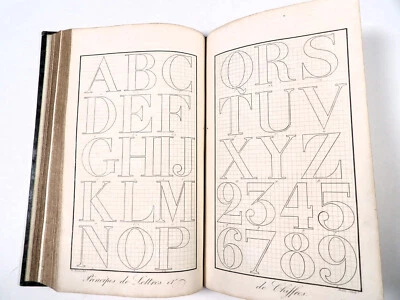 ABC
DEF
GHIJ
KLM
NOP
Principes de Lettres et
QRS
TUV
XYZ
2345
6789
de Chiffres